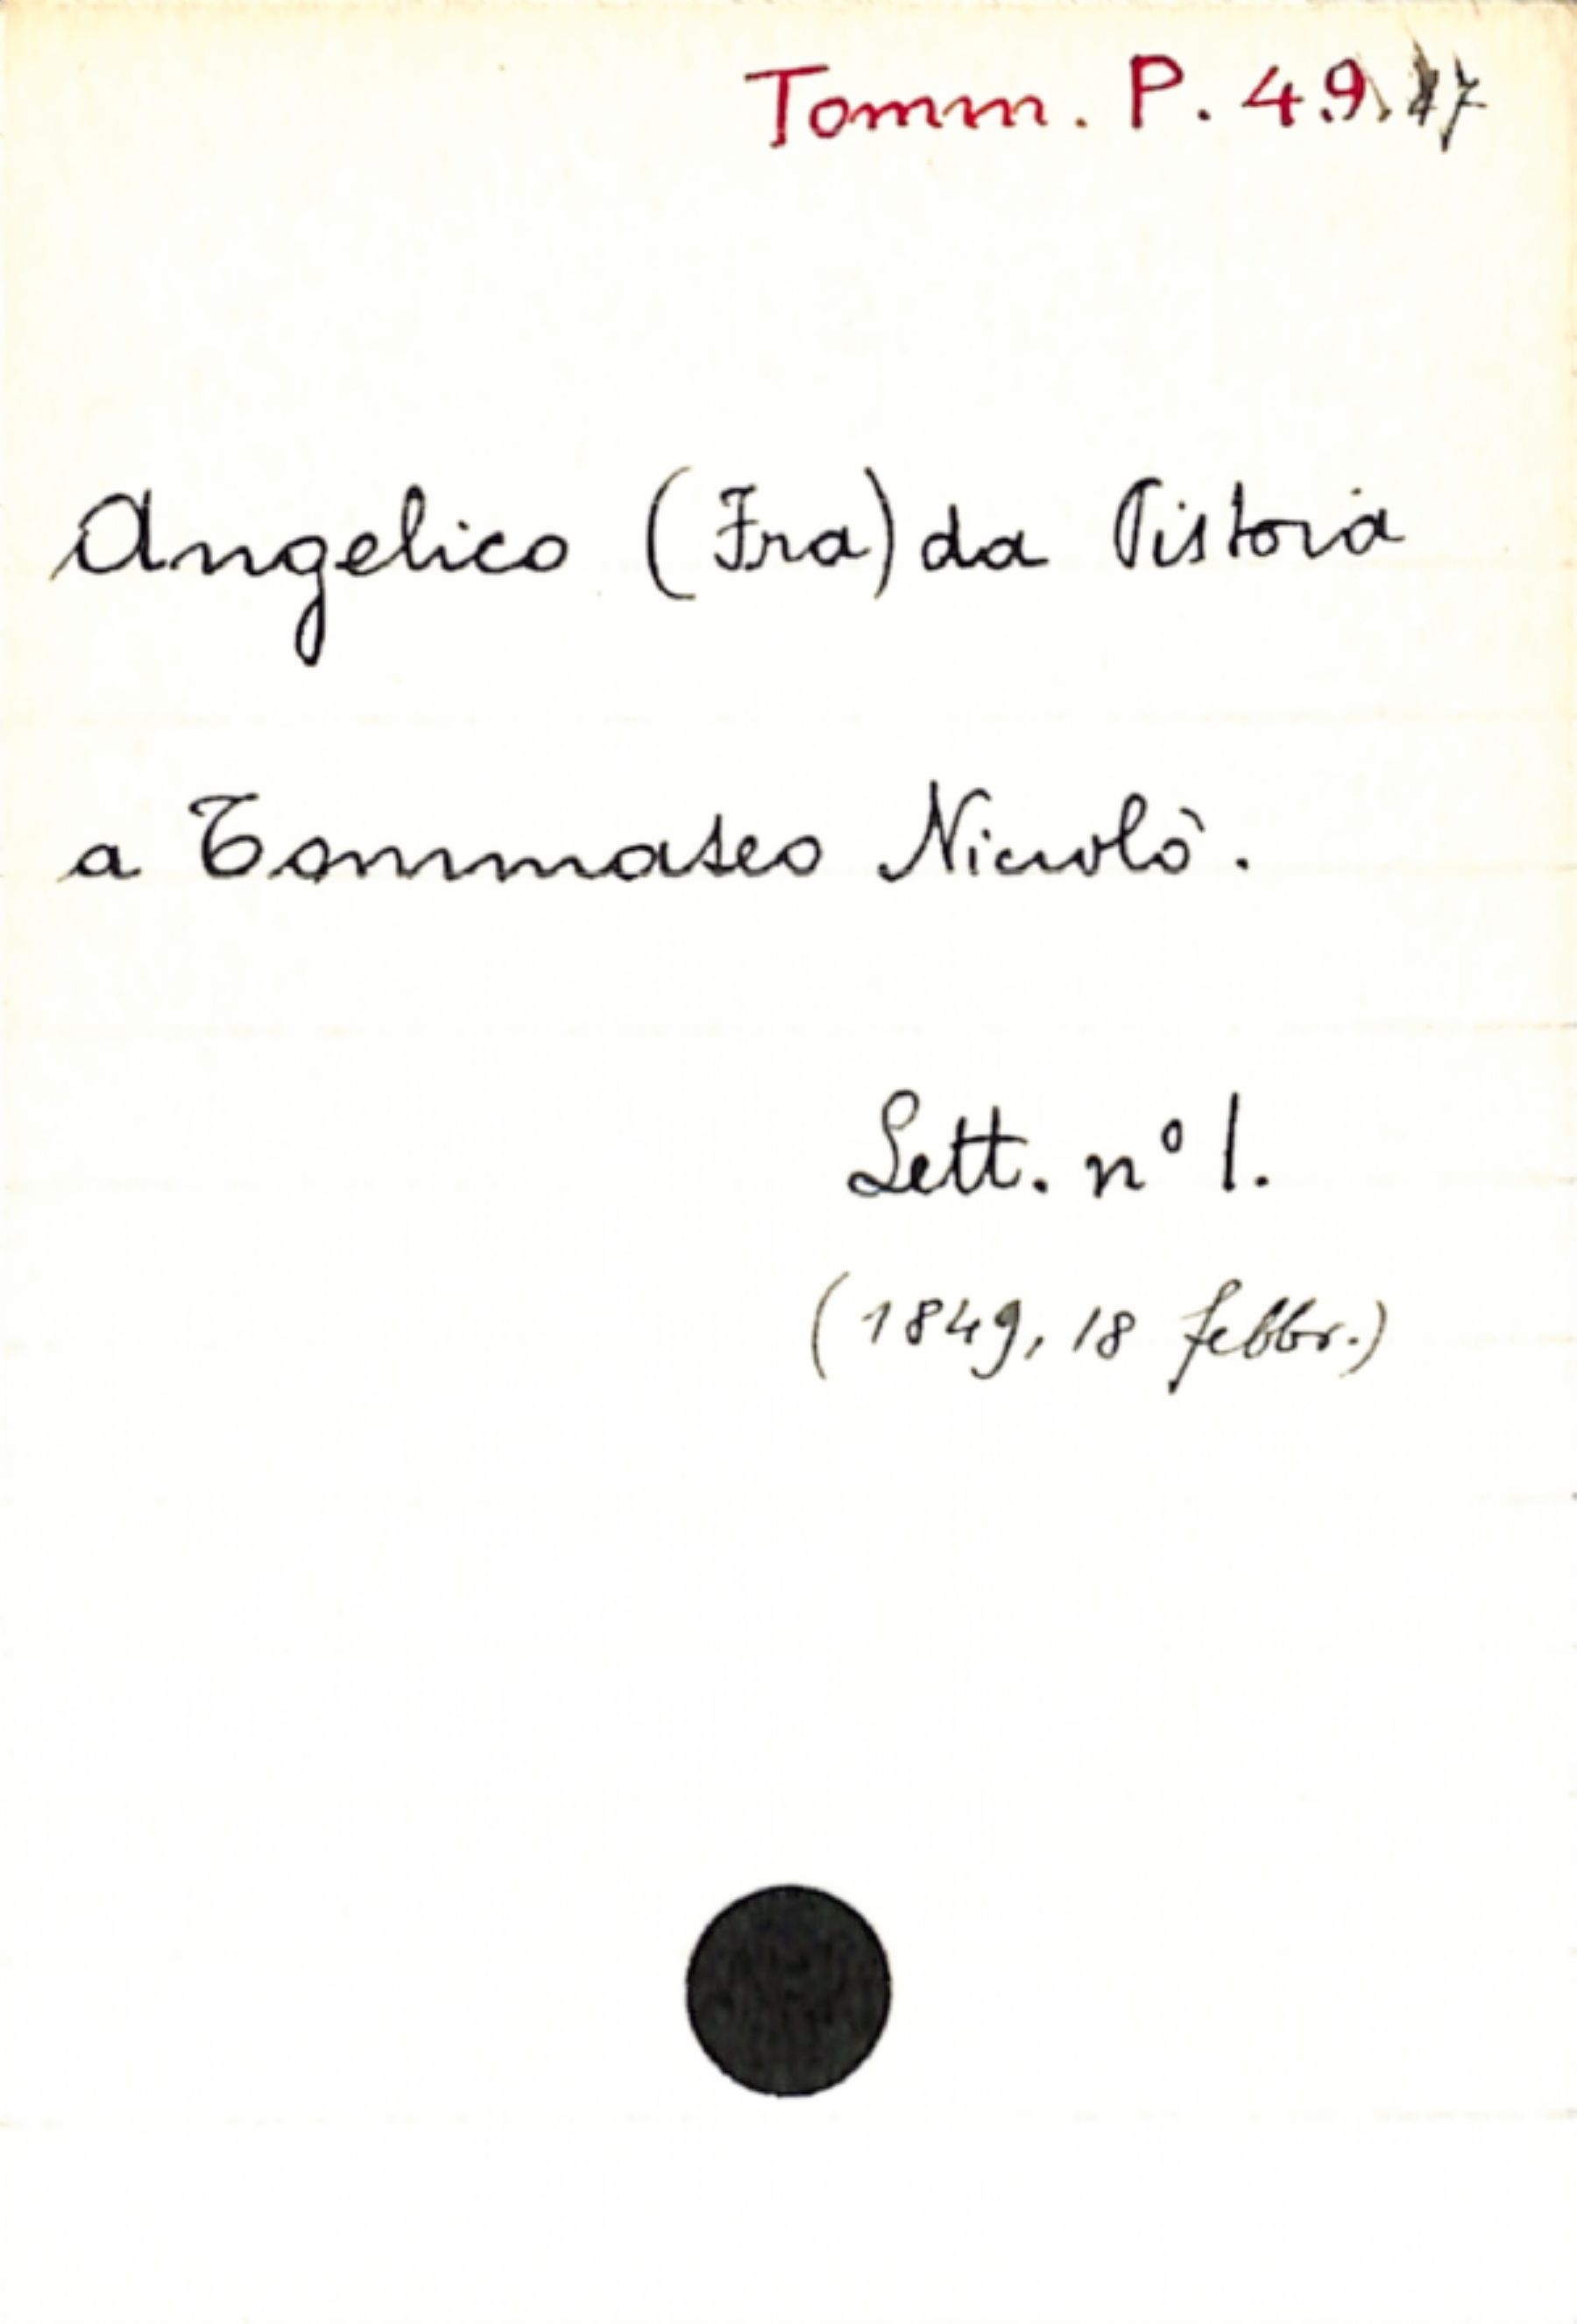 Tomm. P. 49.
Angelico (Fra) da Pistoia
a Tommaseo Niccolò.
Lett. n° 1.
(1849, 18 febbr.)